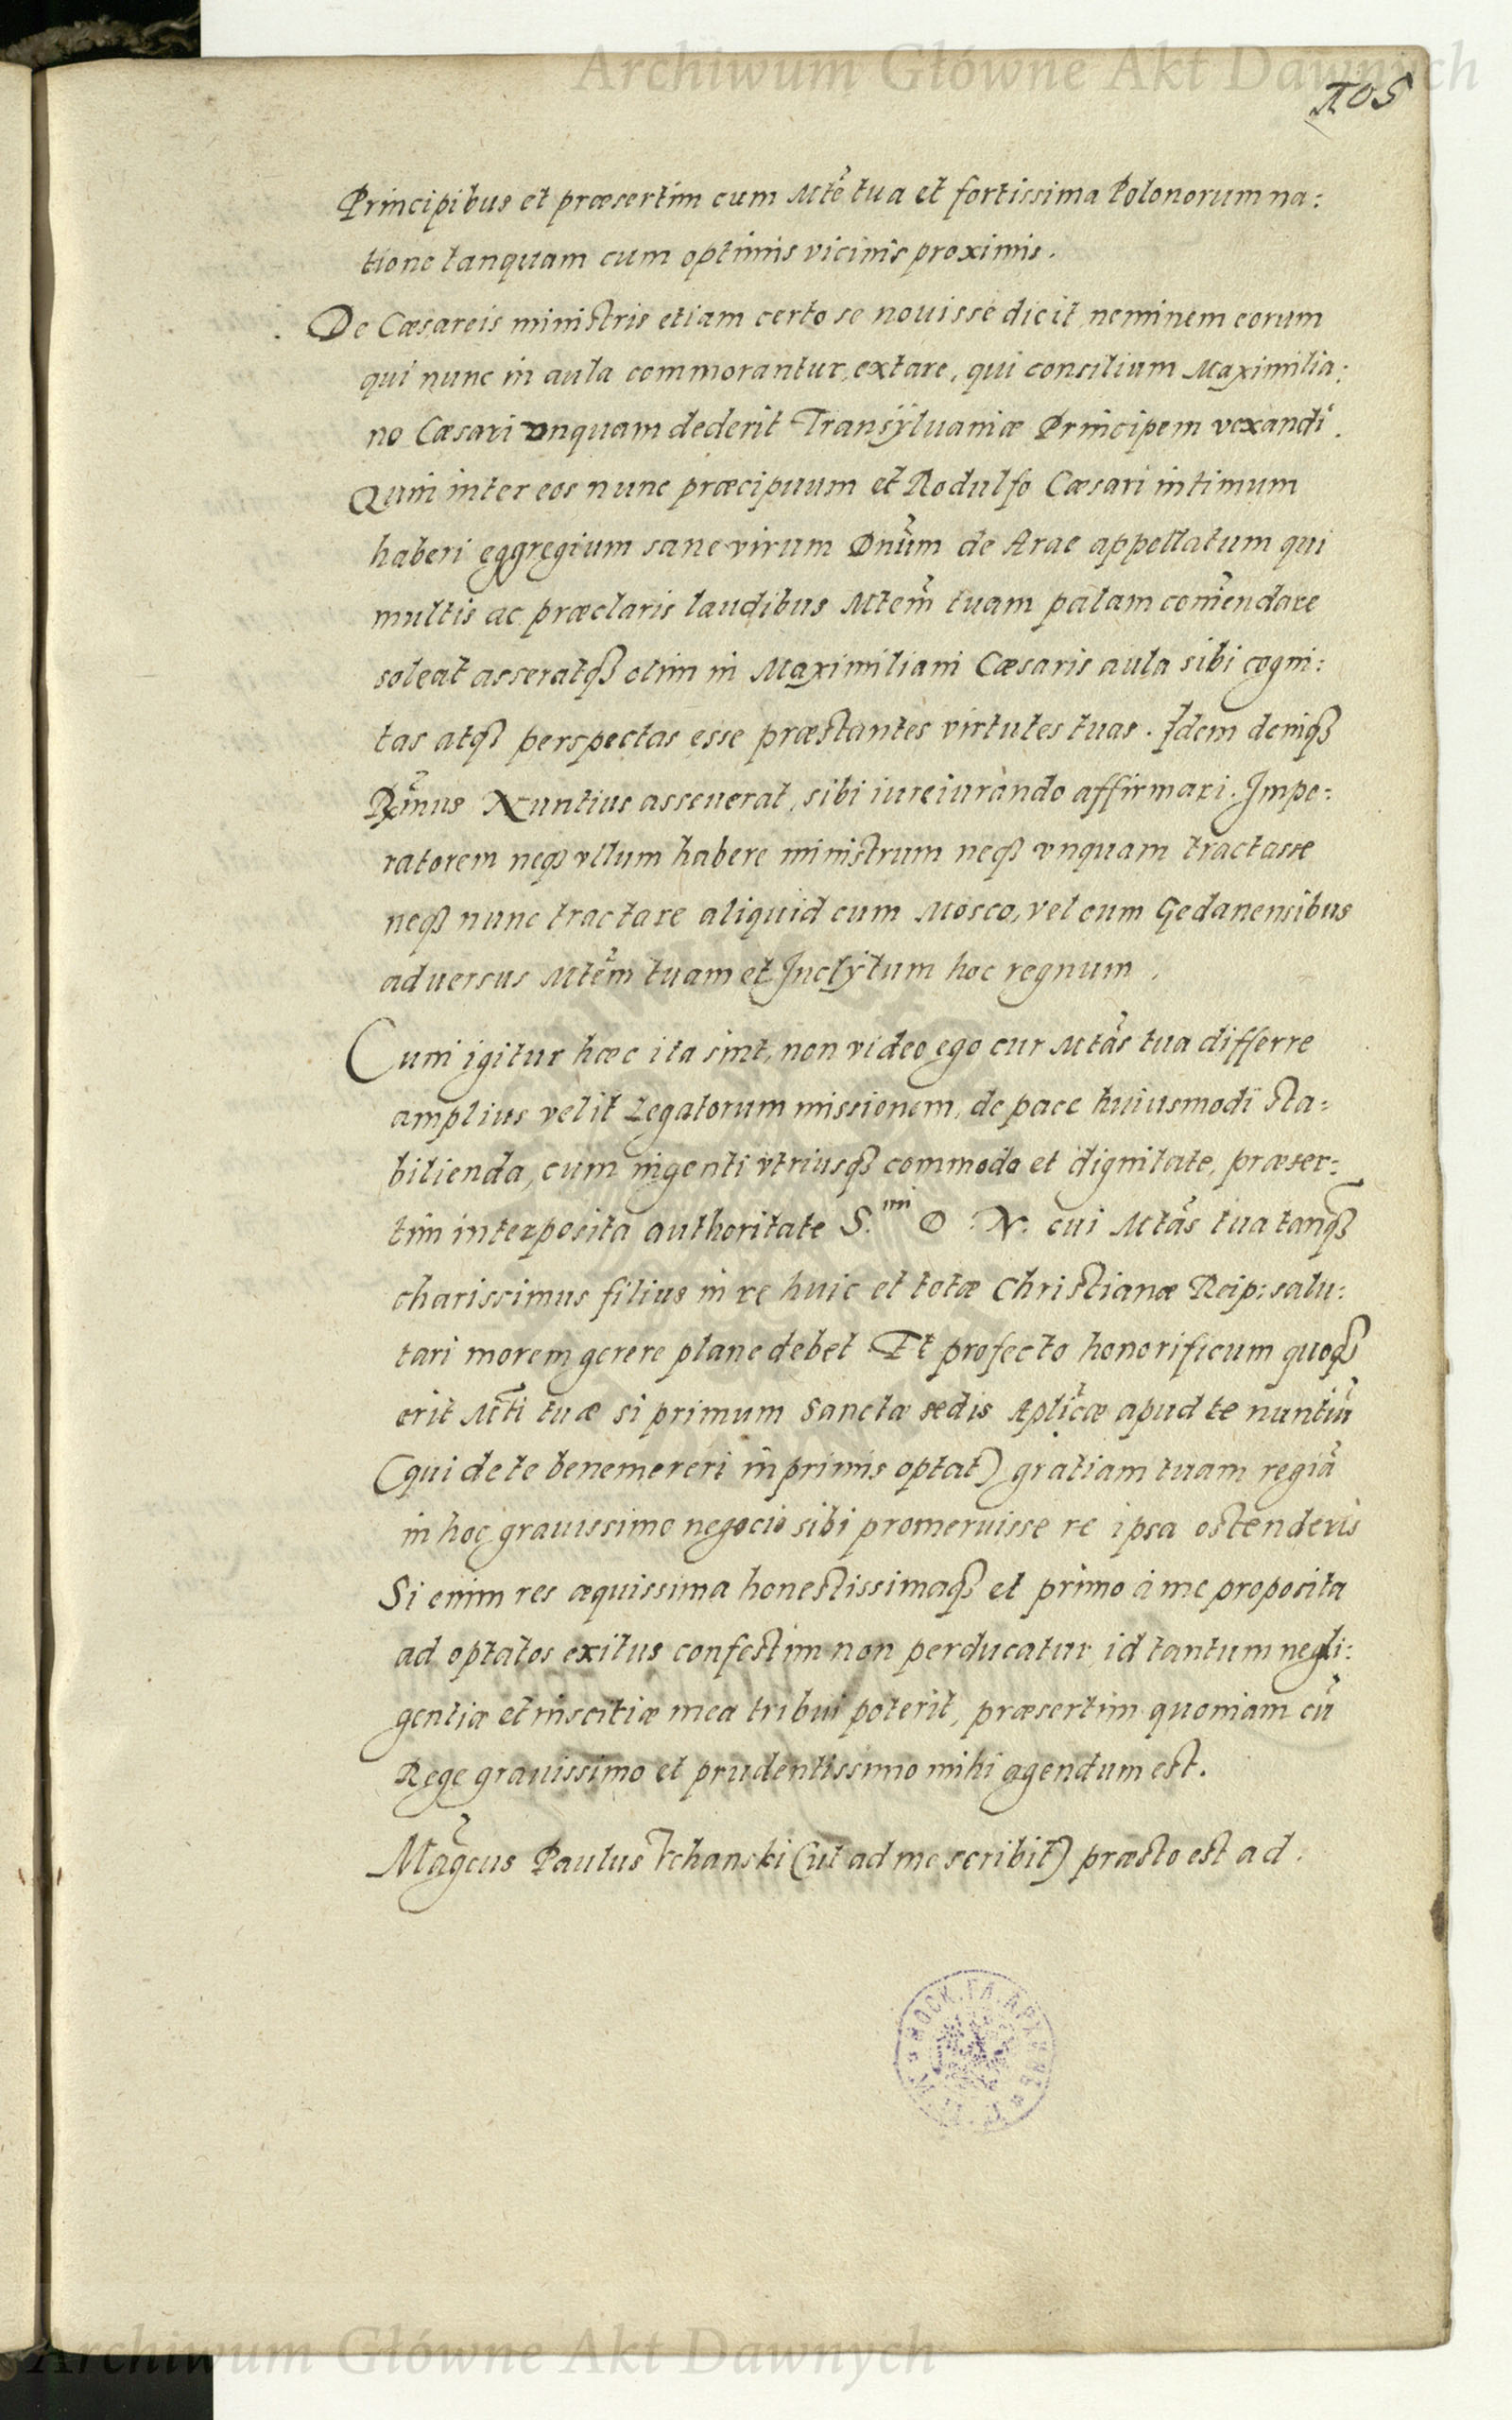 Archiwum Główne Akt Dawnych
105
Principibus et præsertim cum Mte tua et fortissima Polonorum na:
tione tanquam cum optimis vicinis proximis.
De Cæsareis ministris etiam certo se nouisse dicit, neminem eorum
qui nunc in aula commorantur, extare, qui consilium Maximilia:
no Cæsari vnquam dederit Transÿluaniæ Principem vexandi.
Quin inter eos nunc præcipuum et Rodulfo Cæsari intimum
haberi eggregium sane virum Dnum de Arac appellatum qui
multis ac præclaris laudibus Mtem tuam palam comendare
soleat asseratq3 olim in Maximiliani Cæsaris aula sibi cogni:
tas atq3 perspectas esse præstantes virtutes tuas. Idem deniq3
Rmus Nuntius asseuerat, sibi iureiurando affirmari. Impe:
ratorem neq3 vllum habere ministrum neq3 vnquam tractasse
neq3 nunc tractare aliquid cum Mosco, vel cum Gedanensibus
aduersus Mtem tuam et Inclÿtum hoc regnum.
Cum igitur hæc ita sint, non video ego cur Mtas tua differre
amplius velit Legatorum missionem, de pace huiusmodi sta:
bilienda, cum ingenti vtriusq3 commodo et dignitate, præser:
tim interposita authoritate S.mi D. N. cui Mtas tua tanq3
charissimus filius in re huic et totæ Christianæ Reip: salu:
tari morem gerere plane debet Et profecto honorificum quoq3
erit Mti tuæ si primum Sanctæ sedis Aplicæ apud te nuntiũ
(qui de te benemereri inprimis optat) gratiam tuam regiã
in hoc grauissimo negocio sibi promeruisse re ipsa ostenderis
Si enim res æquissima honestissimaq3 et primo à me proposita
ad optatos exitus confestim non perducatur, id tantum negli:
gentiæ et inscitiæ mea tribui poterit, præsertim quoniam cũ
Rege grauissimo et prudentissimo mihi agendum est.
Magcus Paulus Vchanski (ut ad me scribit) præsto est ad.
Archiwum Główne Akt Dawnych